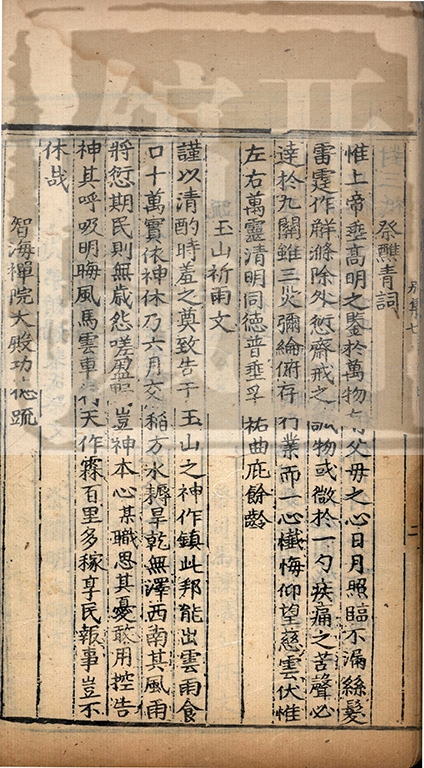 發醮青詞
惟上帝垂高明之鑒於萬物有父母之心日月照臨不漏絲髮
雷霆作解滌除外愆齋戒之誠物或微於一勺疾痛之苦聲必
達於九關雖三災彌綸俯存行業而一心懺悔仰望慈雲伏惟
左右萬靈清明同德普垂孚祐曲庇餘齡
玉山祈雨文
謹以清酌時羞之奠致告于玉山之神作鎮此邦能出雲雨食
口十萬實依神休乃六月交稻方水耨旱乾無澤西南其風雨
將愆期民則無歲怨嗟盈豈神本心某職思其憂敢用控告
神其呼吸明晦風馬雲車天作霖百里多稼享民報事豈不
休哉
智海禪院大殿功德疏